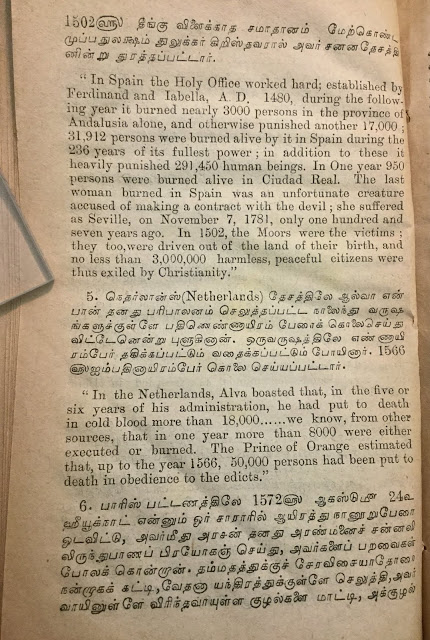 1502௵ தீங்கு விளைக்காத சமாதானம் மேற்கொண்ட
முப்பதுலக்ஷம் துலுக்கர் கிறிஸ்தவரால் அவர் சனனதேசத்தி
னின்று துரத்தப்பட்டார்.
“ In Spain the Holy Office worked hard; established by
Ferdinand and Iabella, A. D. 1480, during the follow-
ing year it burned nearly 3000 persons in the province of
Andalusia alone, and otherwise punished another 17,000 ;
31,912 persons were burned alive by it in Spain during the
236 years of its fullest power ; in addition to these it
heavily punished 291,450 human beings. In One year 950
persons were burned alive in Ciudad Real. The last
woman burned in Spain was an unfortunate creature
accused of making a contract with the devil ; she suffered
as Seville, on November 7, 1781, only one hundred and
seven years ago. In 1502, the Moors were the victims ;
they too,were driven out of the land of their birth, and
no less than 3,000,000 harmless, peaceful citizens were
thus exiled by Christianity.”
5. நெதர்லான்ஸ்(Netherlands) தேசத்திலே ஆல்வா என்
பான் தனது பரிபாலனம் செலுத்தப்பட்ட நாலைந்து வருஷ
ங்களுக்குள்ளே பதினெண்ணாயிரம் பேரைக் கொலைசெய்து
விட்டேனென்று புளுகினான். ஒருவருஷத்திலே எண்ணாயி
ரம்பேர் தகிக்கப்பட்டும் வதைக்கப்பட்டும் போயினார். 1566
௵ஐம்பதினாயிரம்பேர் கொலை செய்யப்பட்டார்.
“ In the Netherlands, Alva boasted that, in the five or
six years of his administration, he had put to death
in cold blood more than 18,000......we know, from other
sources, that in one year more than 8000 were either
executed or burned. The Prince of Orange estimated
that, up to the year 1566, 50,000 persons had been put to
death in obedience to the edicts.”
6. பாரிஸ் பட்டணத்திலே 1572௵ ஆகஸ்டு௴ 24௳
ஹியூக்நாட் என்னும் ஓர் சாராரில் ஆயிரத்து நானூறுபேரை
ஓடவிட்டு, அவர்மீது அரசன் தனது அரண்மனைச் சன்னலி
லிருந்துபாணப் பிரயோகஞ் செய்து, அவர்களைப் பறவைகள்
போலக் கொன்றான். தம்மதத்துக்குச் சேரவிசையாதோரை
நன்முகக் கட்டி,வேதனா யந்திரத்துக்குள்ளே செலுத்தி,அவர்
வாயினுள்ளே விரிந்தவாயுள்ள குழல்களை மாட்டி, அக்குழல்